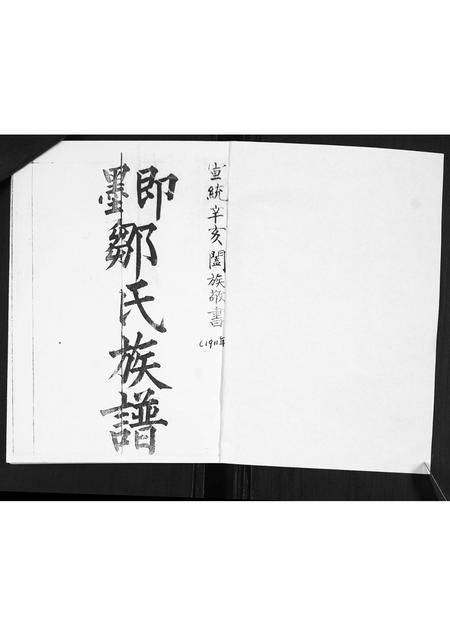 宣統辛亥闔族敬書
(1911年
即墨鄒氏族譜